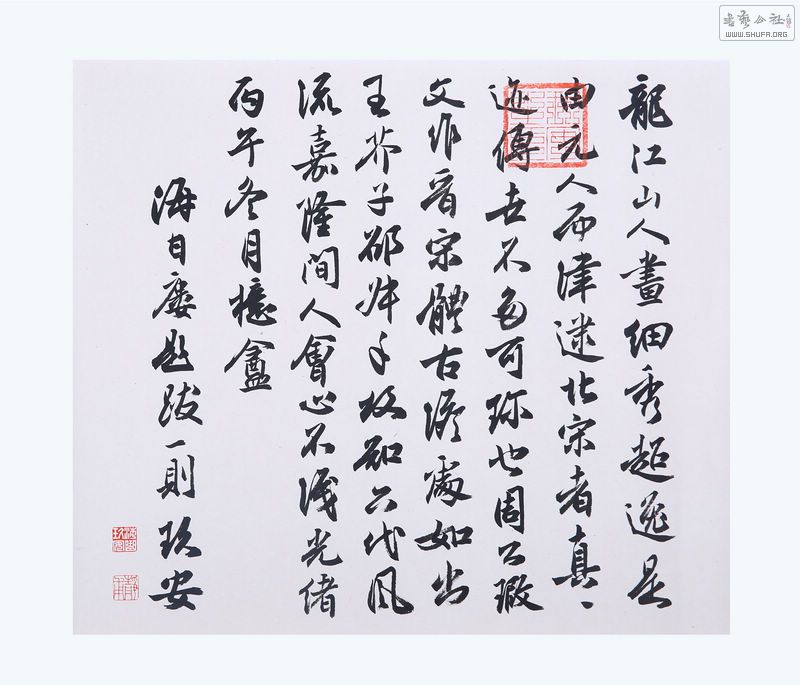 龍江山人畫細秀超逸是
由元人而津逮北宋者真〻
迹傳世不多可珎也周公瑕
文作晋宋體古澹處如出
王芥子卻非手故知六代風
流嘉隆間人會心不淺光绪
丙午冬月檍盦
海日廔題跋一則玖安
書藝公社
WWW.SHUFA.ORG